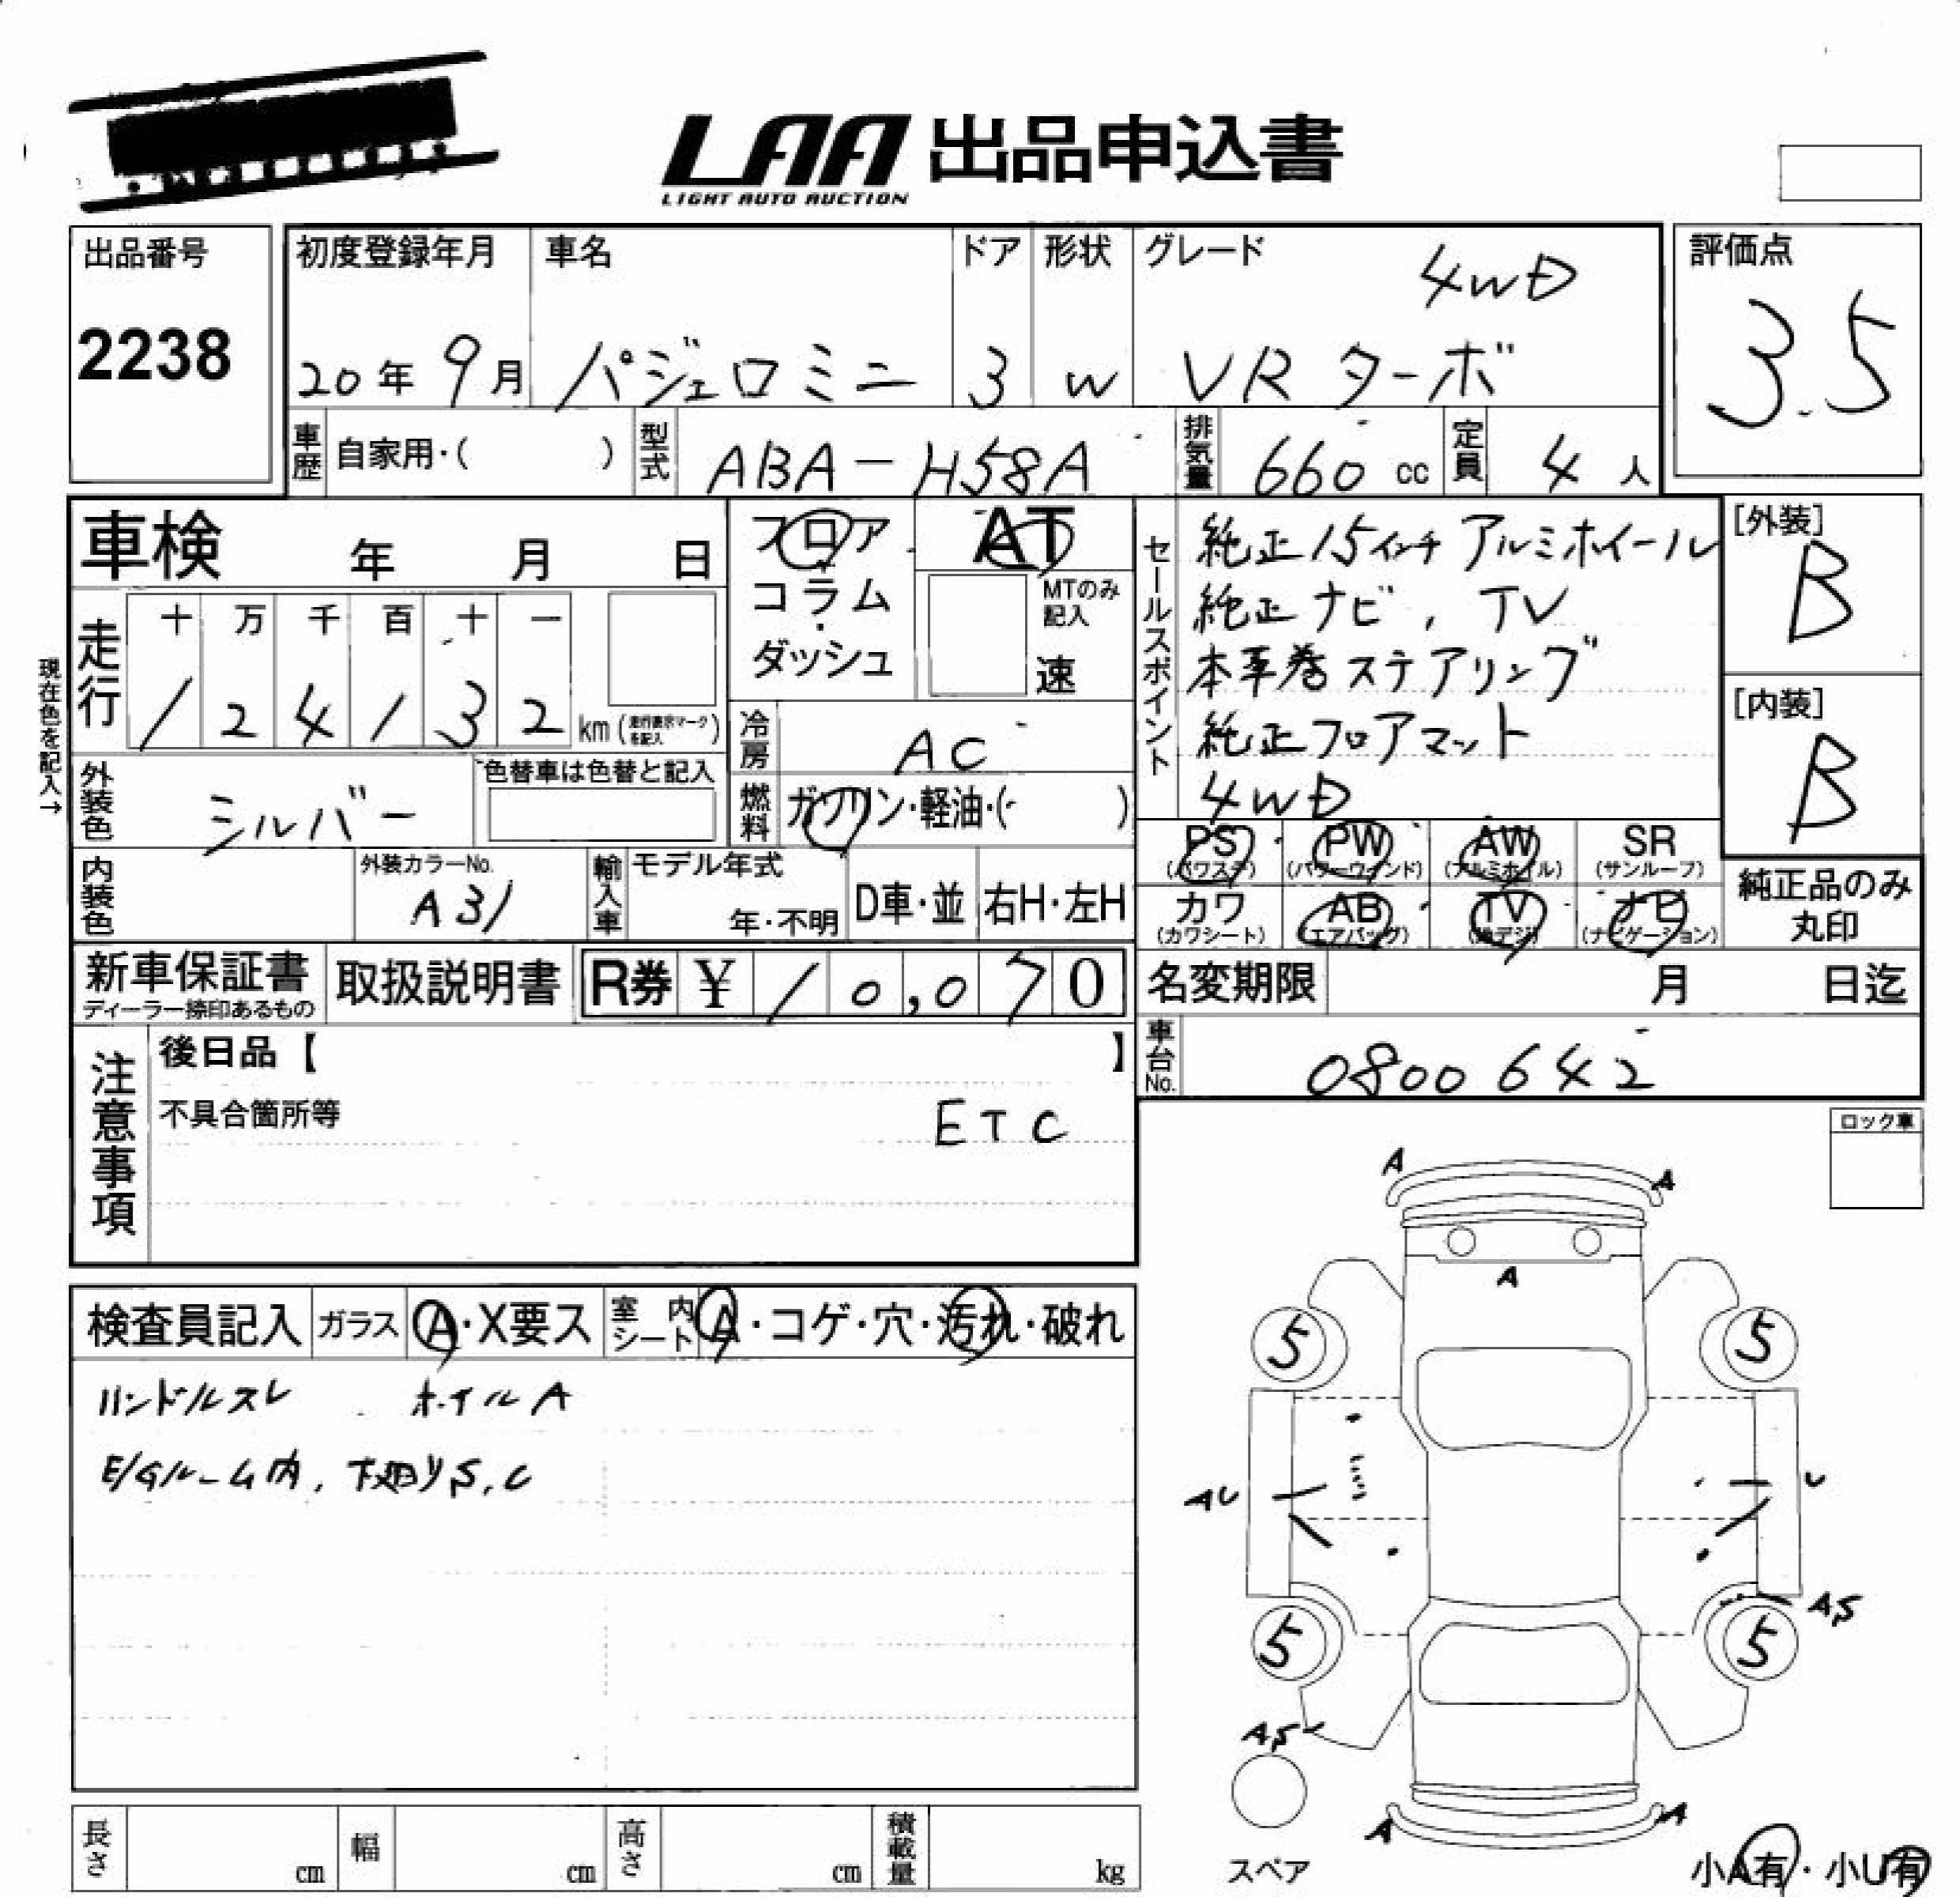 LAA 出品申込書
LIGHT AUTO AUCTION
出品番号
2238
初度登録年月
20年 9月
車名
パジェロミニ
ドア
3
形状
W
グレード
4WD
VR ターボ
評価点
3.5
車歴
自家用・( )
型式
ABA-H58A
排気量
660 cc
定員
4 人
車検 年 月 日
走行
十 万 千 百 十 一
1 2 4 1 3 2 km (走行表示マークを記入)
現在色を記入→
フロア
コラム
・
ダッシュ
AT
MTのみ記入
速
冷房
AC
燃料
ガソリン・軽油・( )
外装色
シルバー
色替車は色替と記入
内装色
外装カラーNo.
A31
輸入車
モデル年式
年・不明
D車・並
右H・左H
新車保証書
ディーラー捺印あるもの
取扱説明書
R券 ¥ 10,070
セールスポイント
純正15インチ アルミホイール
純正ナビ, TV
本革巻ステアリング
純正フロアマット
4WD
[外装]
B
[内装]
B
PS PW AW SR
(パワステ) (パワーウインド) (アルミホイル) (サンルーフ)
カワ AB TV ナビ
(カワシート) (エアバッグ) (地デジ) (ナビゲーション)
純正品のみ
丸印
名変期限 月 日迄
車台No.
0800642
注意事項
後日品【 】
不具合箇所等
ETC
ロック車
検査員記入
ガラス
A・X要ス
室内シート
A・コゲ・穴・汚れ・破れ
ハンドルスレ ホイルA
E/Gルーム内, 下廻りS,C
A
A
A
5
5
AU
U
AS
5
5
AS
A
A
スペア
小A有・小U有
長さ cm
幅 cm
高さ cm
積載量 kg